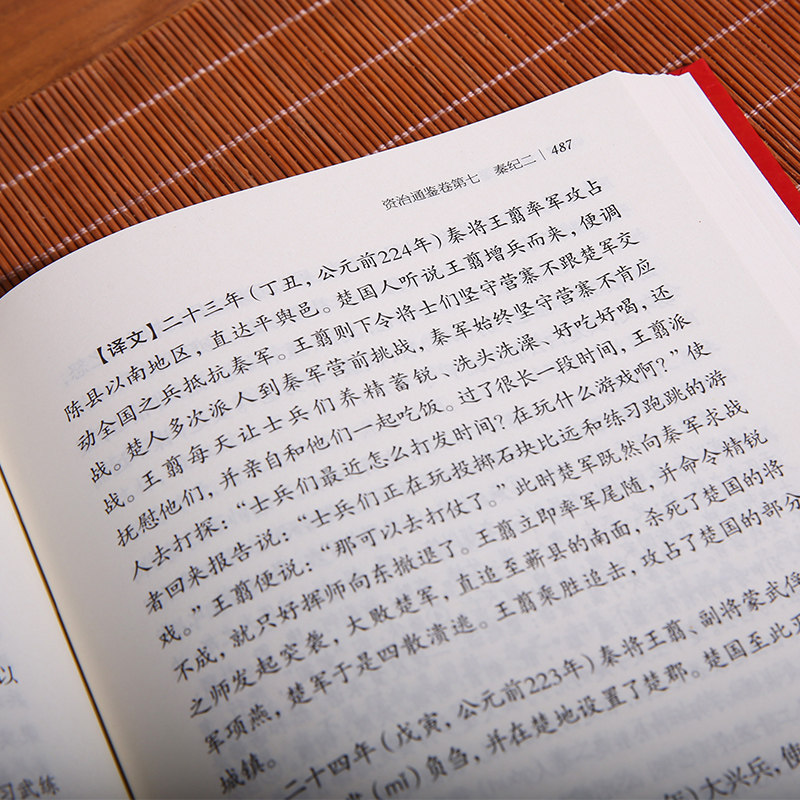 资治通鉴卷第七 秦纪二 | 487
【译文】二十三年（丁丑，公元前224年）秦将王翦率军攻占
陈县以南地区，直达平舆邑。楚国人听说王翦增兵而来，便调
动全国之兵抵抗秦军。王翦则下令将士们坚守营寨不跟楚军交
战。楚人多次派人到秦军营前挑战，秦军始终坚守营寨不肯应
战。王翦每天让士兵们养精蓄锐、洗头洗澡、好吃好喝，还
抚慰他们，并亲自和他们一起吃饭。过了很长一段时间，王翦派
人去打探：“士兵们最近怎么打发时间？在玩什么游戏啊？”使
者回来报告说：“士兵们正在玩投掷石块比远和练习跑跳的游
戏。”王翦便说：“那可以去打仗了。”此时楚军既然向秦军求战
不成，就只好挥师向东撤退了。王翦立即率军尾随，并命令精锐
之师发起突袭，大败楚军，直追至蕲县的南面，杀死了楚国的将
军项燕，楚军于是四散溃逃。王翦乘胜追击，攻占了楚国的部分
城镇。
二十四年（戊寅，公元前223年）秦将王翦、副将蒙武俘
（mǐ）负刍，并在楚地设置了楚郡。楚国至此
年）大兴兵，使
以
习武练